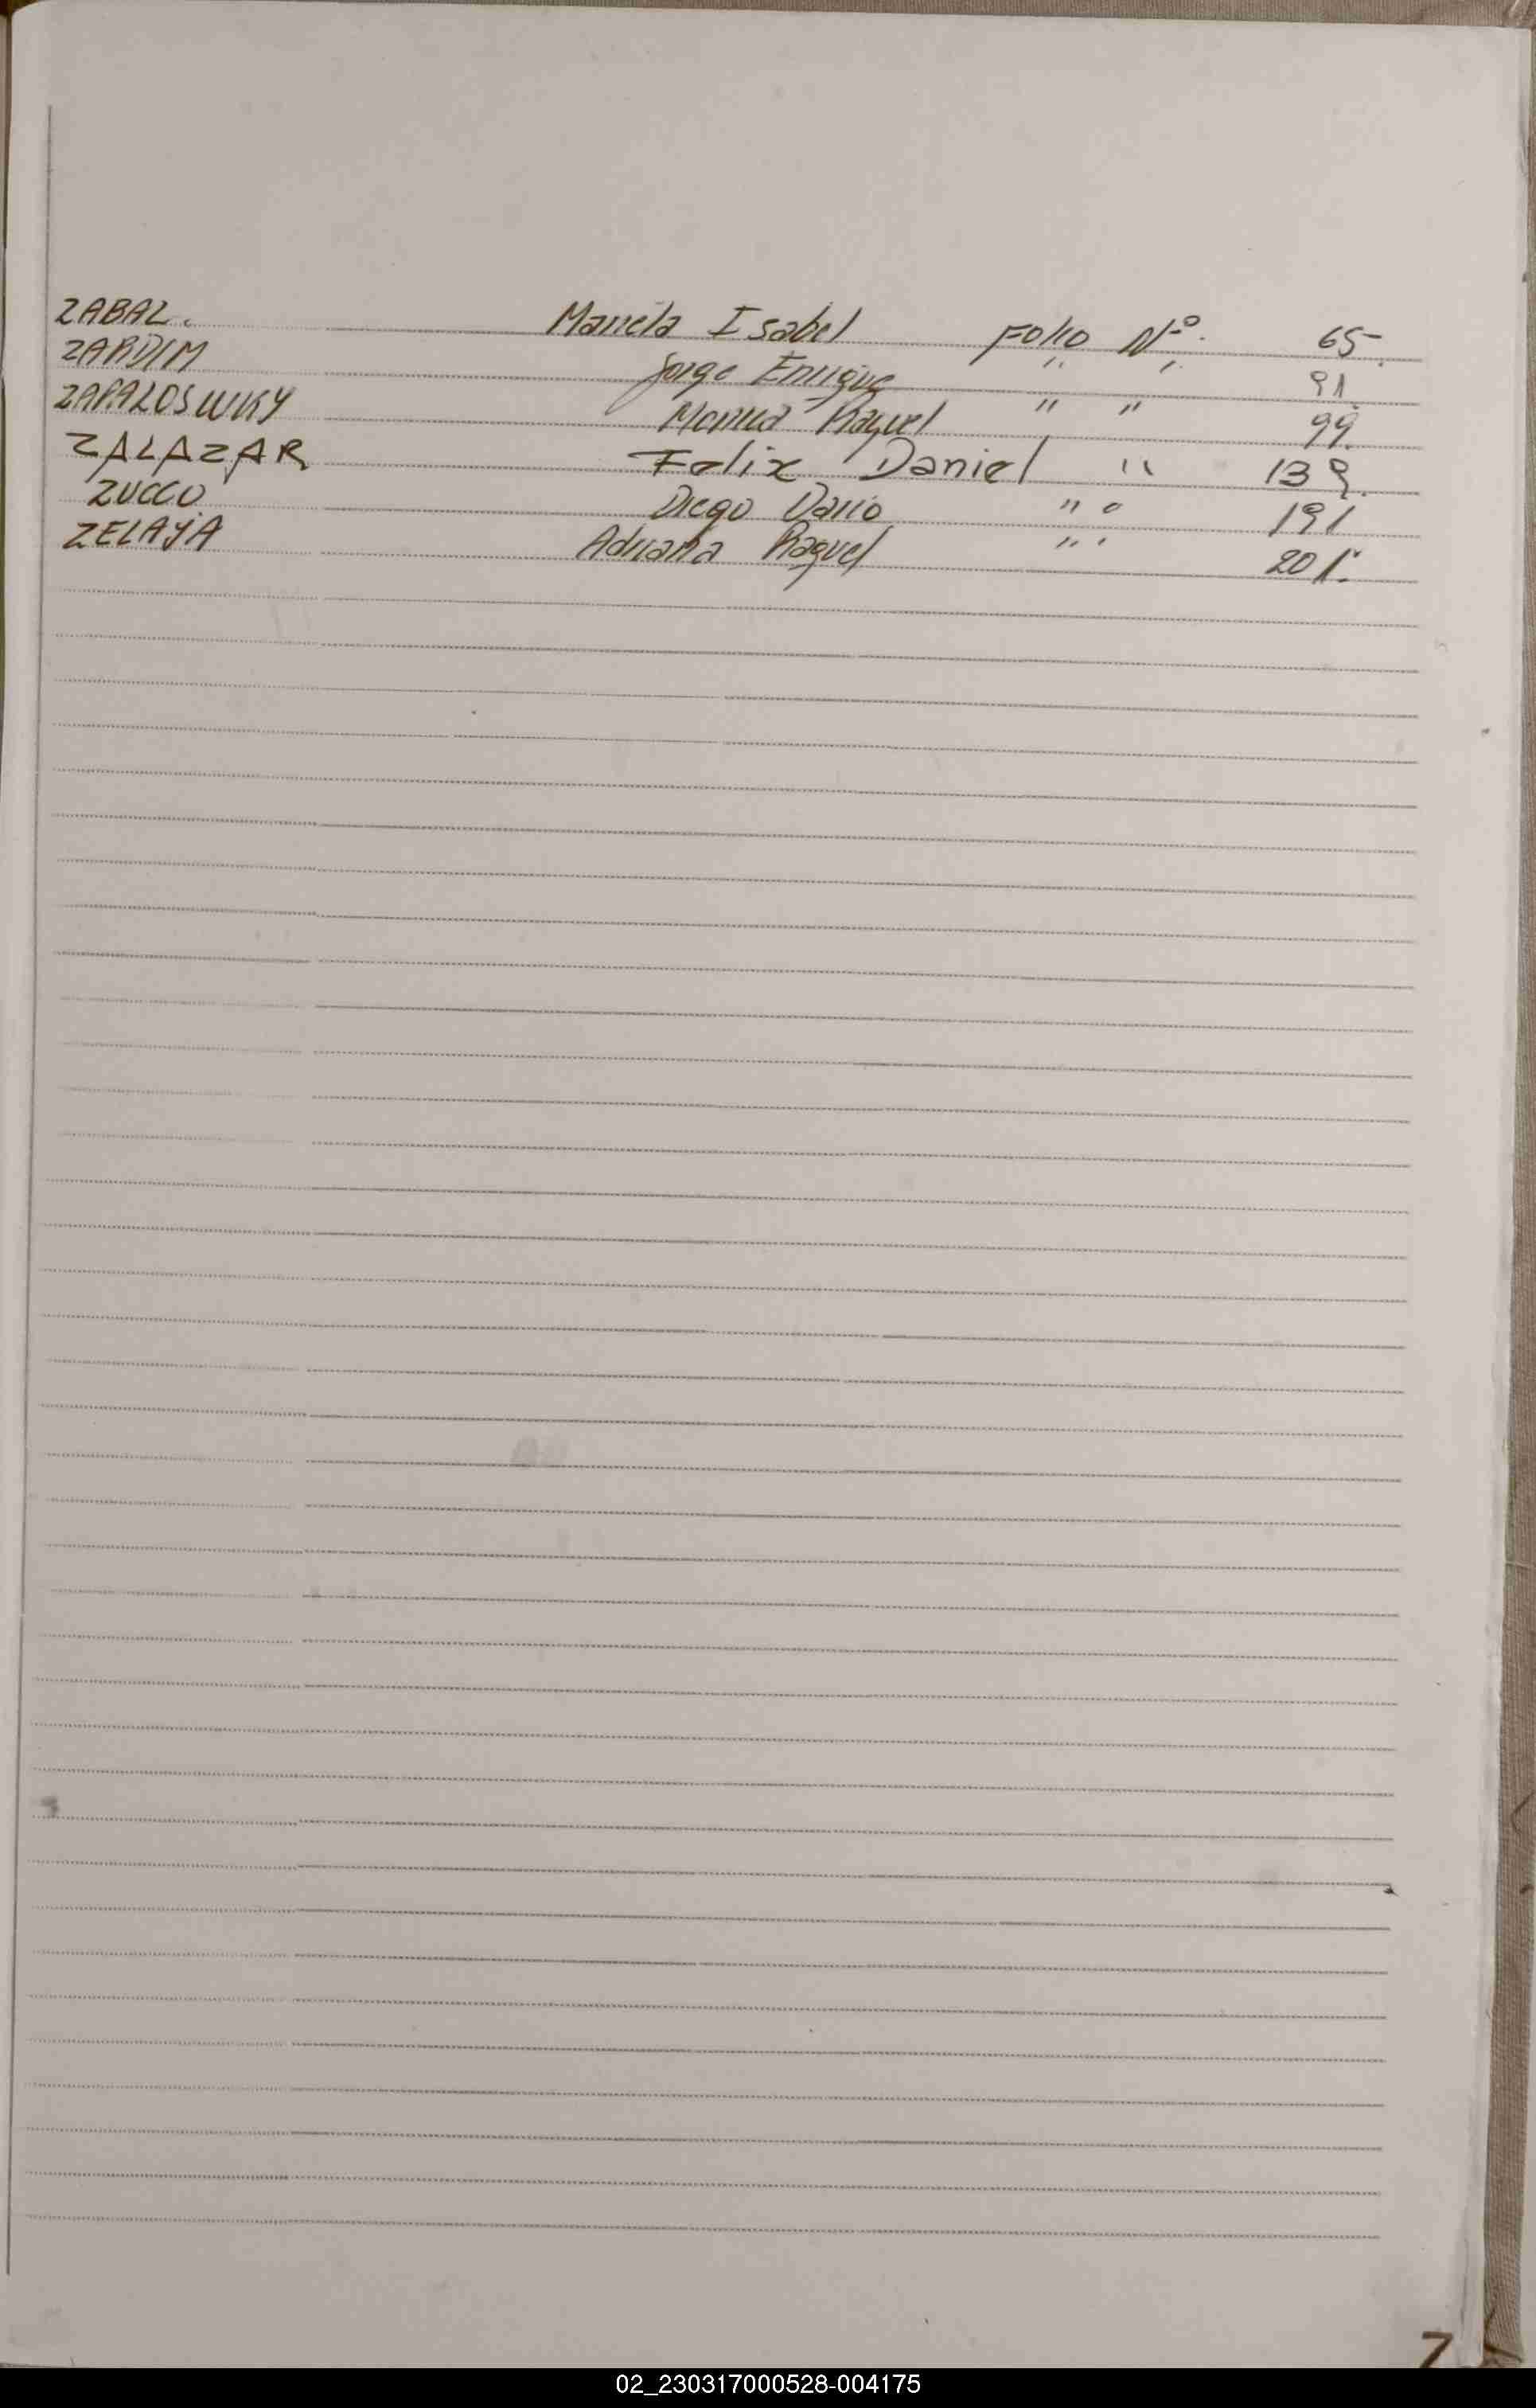 ZABAL. Mariela Isabel Folio Nº. 65.
ZARDIM Jorge Enrique " " 91.
ZAPALOSWKY Monica Raquel " " 99.
ZALAZAR Felix Daniel " 139.
ZUCCO Diego Dario " " 191
ZELAYA Adriana Raquel " " 201.
Z
02_230317000528-004175